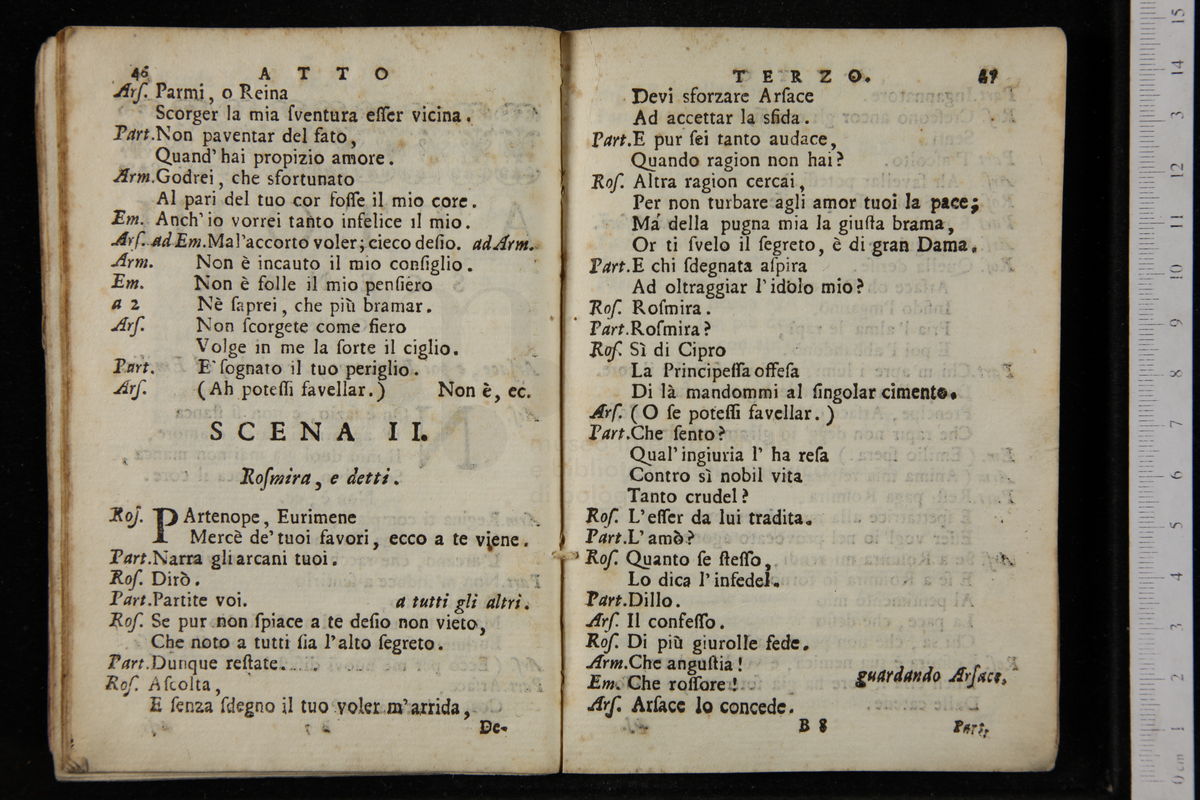 46 ATTO
Arſ. Parmi, o Reina
Scorger la mia ſventura eſſer vicina.
Part. Non paventar del fato,
Quand' hai propizio amore.
Arm. Godrei, che sfortunato
Al pari del tuo cor foſſe il mio core.
Em. Anch' io vorrei tanto infelice il mio.
Arſ. ad Em. Mal'accorto voler; cieco deſio. ad Arm.
Arm. Non è incauto il mio conſiglio.
Em. Non è folle il mio penſiero
a 2 Nè ſaprei, che più bramar.
Arſ. Non ſcorgete come fiero
Volge in me la ſorte il ciglio.
Part. E' ſognato il tuo periglio.
Arſ. (Ah poteſſi favellar.) Non è, ec.
SCENA II.
Roſmira, e detti.
Roſ. PArtenope, Eurimene
Mercè de' tuoi favori, ecco a te viene.
Part. Narra gli arcani tuoi.
Roſ. Dirò.
Part. Partite voi. a tutti gli altri.
Roſ. Se pur non ſpiace a te deſio non vieto,
Che noto a tutti ſia l'alto ſegreto.
Part. Dunque reſtate.
Roſ. Aſcolta,
E ſenza ſdegno il tuo voler m'arrida,
De-
TERZO. 47
Devi sforzare Arſace
Ad accettar la sfida.
Part. E pur ſei tanto audace,
Quando ragion non hai?
Roſ. Altra ragion cercai,
Per non turbare agli amor tuoi la pace;
Ma della pugna mia la giuſta brama,
Or ti ſvelo il ſegreto, è di gran Dama.
Part. E chi ſdegnata aſpira
Ad oltraggiar l'idolo mio?
Roſ. Roſmira.
Part. Roſmira?
Roſ. Sì di Cipro
La Principeſſa offeſa
Di là mandommi al ſingolar cimento.
Arſ. (O ſe poteſſi favellar.)
Part. Che ſento?
Qual' ingiuria l' ha reſa
Contro sì nobil vita
Tanto crudel?
Roſ. L'eſſer da lui tradita.
Part. L' amò?
Roſ. Quanto ſe ſteſſo,
Lo dica l'infedel.
Part. Dillo.
Arſ. Il confeſſo.
Roſ. Di più giurolle fede.
Arm. Che anguſtia!
Em. Che roſſore! guardando Arſace.
Arſ. Arſace lo concede.
B 8 Part.